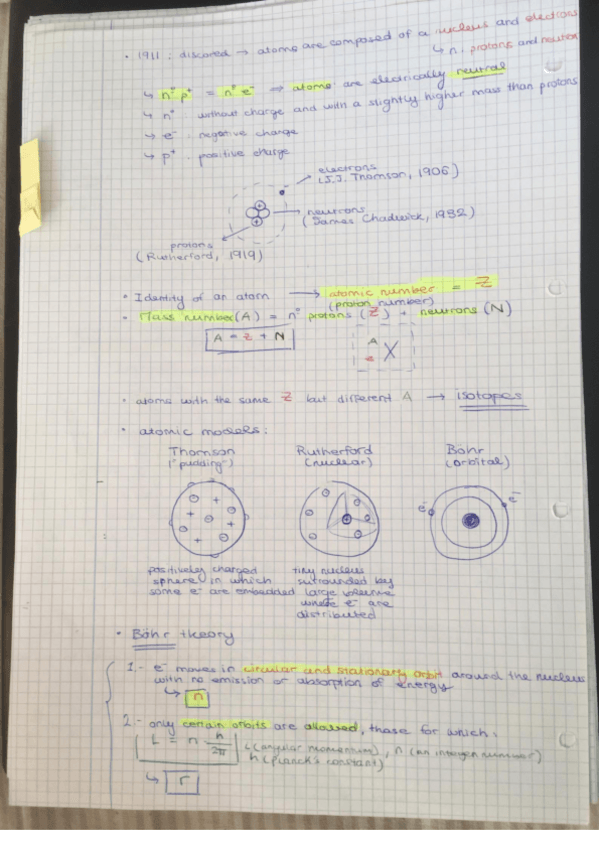 • 1911: discored → atoms are composed of a nucleus and electrons
↳ n: protons and neutron
↳ nº p⁺ = nº e⁻ ⇒ atoms are electrically neutral
↳ n° without charge and with a slightly higher mass than protons
↳ e⁻ negative charge
↳ p⁺ positive charge
electrons
(J.J. Thomson, 1906)
neutrons
(James Chadwick, 1932)
protons
(Rutherford, 1919)
• Identity of an atom → atomic number = Z
(proton number)
• Mass number (A) = nº protons (Z) + neutrons (N)
A = Z + N
A
Z X
• atoms with the same Z but different A → isotopes
• atomic models:
Thomson
("pudding")
Rutherford
(nuclear)
Böhr
(orbital)
e⁻ e⁻
positively charged
sphere in which
some e⁻ are embedded
tiny nucleus
surrounded by
large volume
where e⁻ are
distributed
• Böhr theory
1.- e⁻ moves in circular and stationary orbit around the nucleus
with no emission or absorption of energy
↳ n
2.- only certain orbits are allowed, those for which:
L = n h/2π L (angular momentum), n (an integer number)
h (Planck's constant)
↳ r